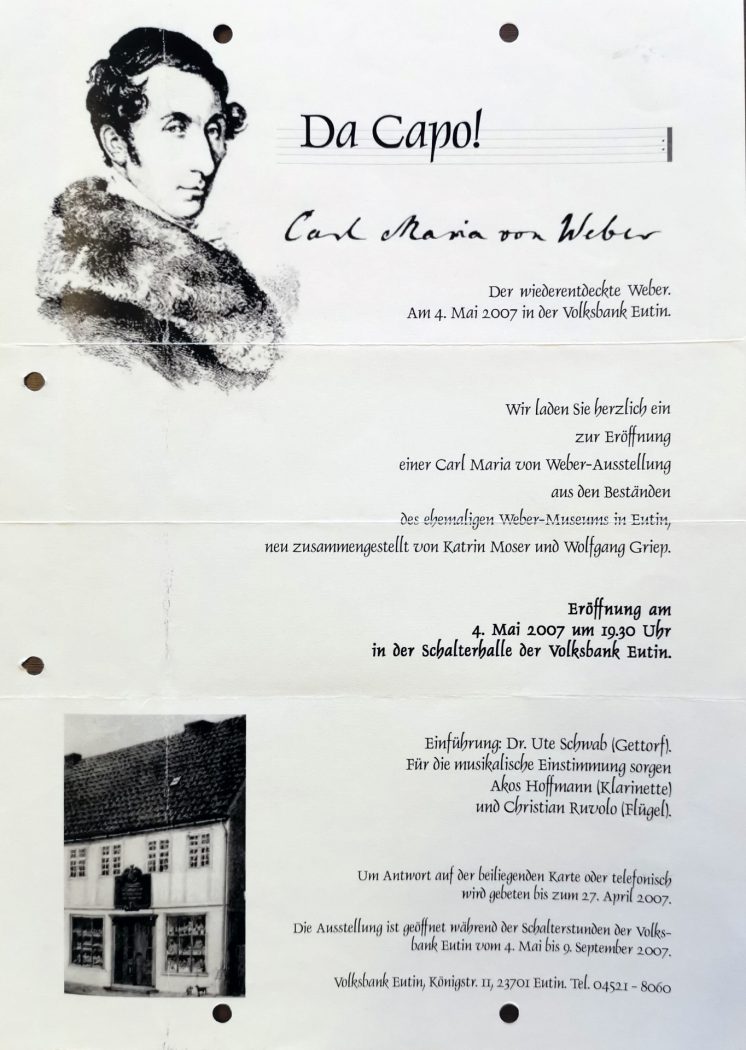 Da Capo!
Carl Maria von Weber
Der wiederentdeckte Weber.
Am 4. Mai 2007 in der Volksbank Eutin.
Wir laden Sie herzlich ein
zur Eröffnung
einer Carl Maria von Weber-Ausstellung
aus den Beständen
des ehemaligen Weber-Museums in Eutin,
neu zusammengestellt von Katrin Moser und Wolfgang Griep.
Eröffnung am
4. Mai 2007 um 19.30 Uhr
in der Schalterhalle der Volksbank Eutin.
Einführung: Dr. Ute Schwab (Gettorf).
Für die musikalische Einstimmung sorgen
Akos Hoffmann (Klarinette)
und Christian Ruvolo (Flügel).
Um Antwort auf der beiliegenden Karte oder telefonisch
wird gebeten bis zum 27. April 2007.
Die Ausstellung ist geöffnet während der Schalterstunden der Volks-
bank Eutin vom 4. Mai bis 9. September 2007.
Volksbank Eutin, Königstr. 11, 23701 Eutin. Tel. 04521 - 8060